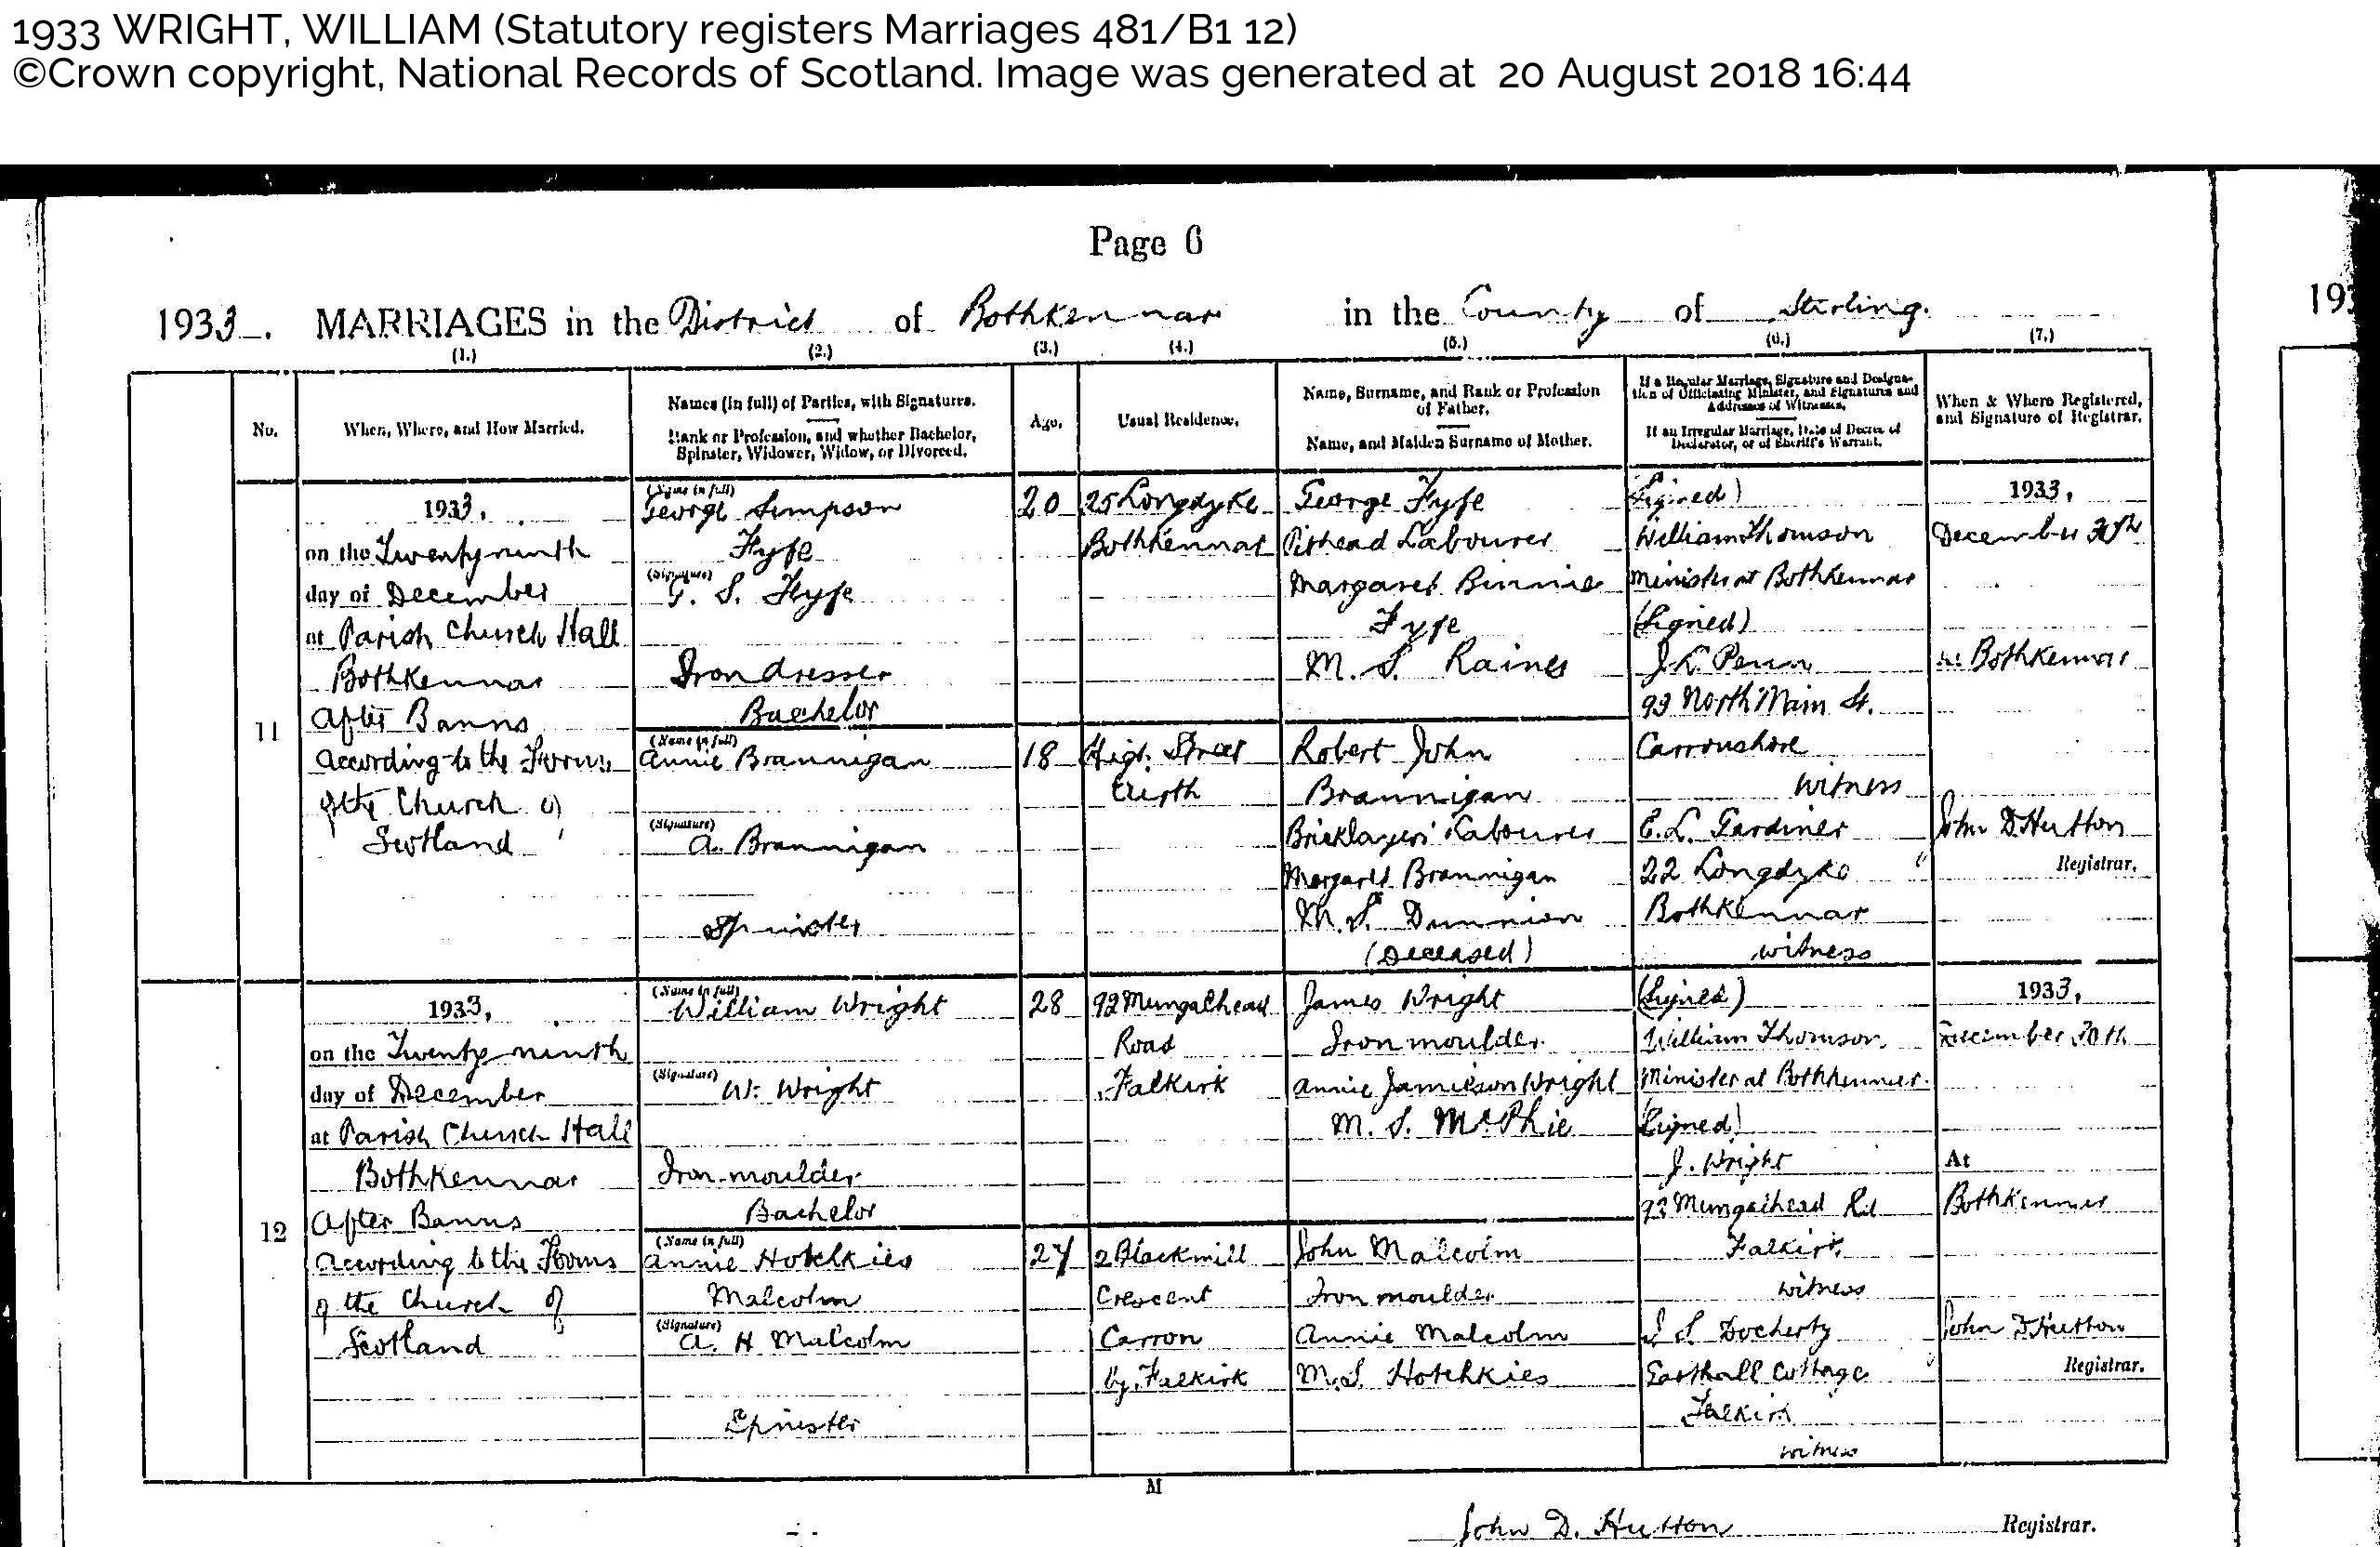 1933 WRIGHT, WILLIAM (Statutory registers Marriages 481/B1 12)
©Crown copyright, National Records of Scotland. Image was generated at 20 August 2018 16:44
Page 6
1933. MARRIAGES in the District of Bothkennar in the County of Stirling.
193
(1.) (2.) (3.) (4.) (5.) (6.) (7.)
No.
When, Where, and How Married.
Names (in full) of Parties, with Signatures.
Rank or Profession, and whether Bachelor,
Spinster, Widower, Widow, or Divorced.
Age.
Usual Residence.
Name, Surname, and Rank or Profession
of Father.
Name, and Maiden Surname of Mother.
If a Regular Marriage, Signature and Designa-
tion of Officiating Minister, and Signatures and
Addresses of Witnesses.
If an Irregular Marriage, Date of Decree of
Declarator, or of Sheriff's Warrant.
When & Where Registered,
and Signature of Registrar.
11
1933,
on the Twenty ninth
day of December
at Parish Church Hall
Bothkennar
After Banns
According to the Forms
of the Church of
Scotland
(Name in full)
George Simpson
Fyfe
(Signature)
G. S. Fyfe
Iron dresser
Bachelor
20
25 Longdyke
Bothkennar
George Fyfe
Pithead Labourer
Margaret Binnie
Fyfe
M. S. Raines
(Name in full)
Annie Brannigan
(Signature)
A. Brannigan
Spinster
18
High Street
Airth
Robert John
Brannigan
Bricklayers' Labourer
Margaret Brannigan
M. S. Dunnion
(Deceased)
(Signed)
William Thomson
Minister at Bothkennar
(Signed)
93 North Main St.
Carronshore
witness
E. L. Gardiner
22 Longdyke
Bothkennar
witness
1933,
December 30th
At Bothkennar
John D. Hutton
Registrar.
12
1933,
on the Twenty ninth
day of December
at Parish Church Hall
Bothkennar
After Banns
According to the Forms
of the Church of
Scotland
(Name in full)
William Wright
(Signature)
W. Wright
Iron-moulder
Bachelor
28
92 Mungalhead
Road
Falkirk
James Wright
Iron moulder
Annie Jamieson Wright
M. S. McPhie
(Name in full)
Annie Hotchkies
Malcolm
(Signature)
A. H Malcolm
Spinster
27
2 Blackmill
Crescent
Carron
by Falkirk
John Malcolm
Iron moulder
Annie Malcolm
M.S. Hotchkies
(Signed)
William Thomson
Minister at Bothkennar.
(Signed)
J. Wright
92 Mungalhead Rd
Falkirk
witness
Docherty
Cottage
Falkirk
witness
1933,
December 30th
At
Bothkennar
John D. Hutton
Registrar.
M
John D. Hutton Registrar.